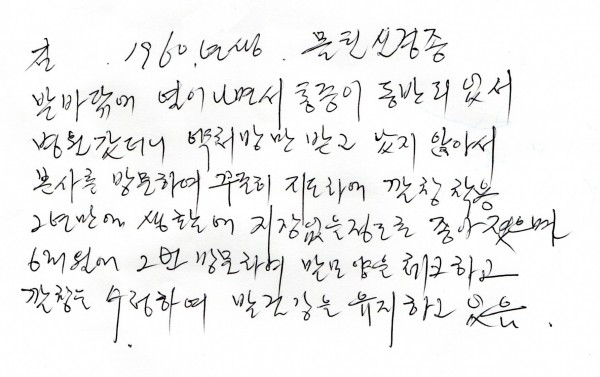 . 1960.년생. 몰턴신경종
발바닦에 열이나면서 통증이 동반되 있서
병원갔더니 약처방만 받고 낫지 않아서
본사를 방문하여 꾸준히 지도하에 깔창 착용
2년만에 생활에 지장없을정도로 좋아졌으며
6개월에 2번 방문하여 발모양을 체크하고
깔창는 수정하며 발건강을 유지하고 있음.